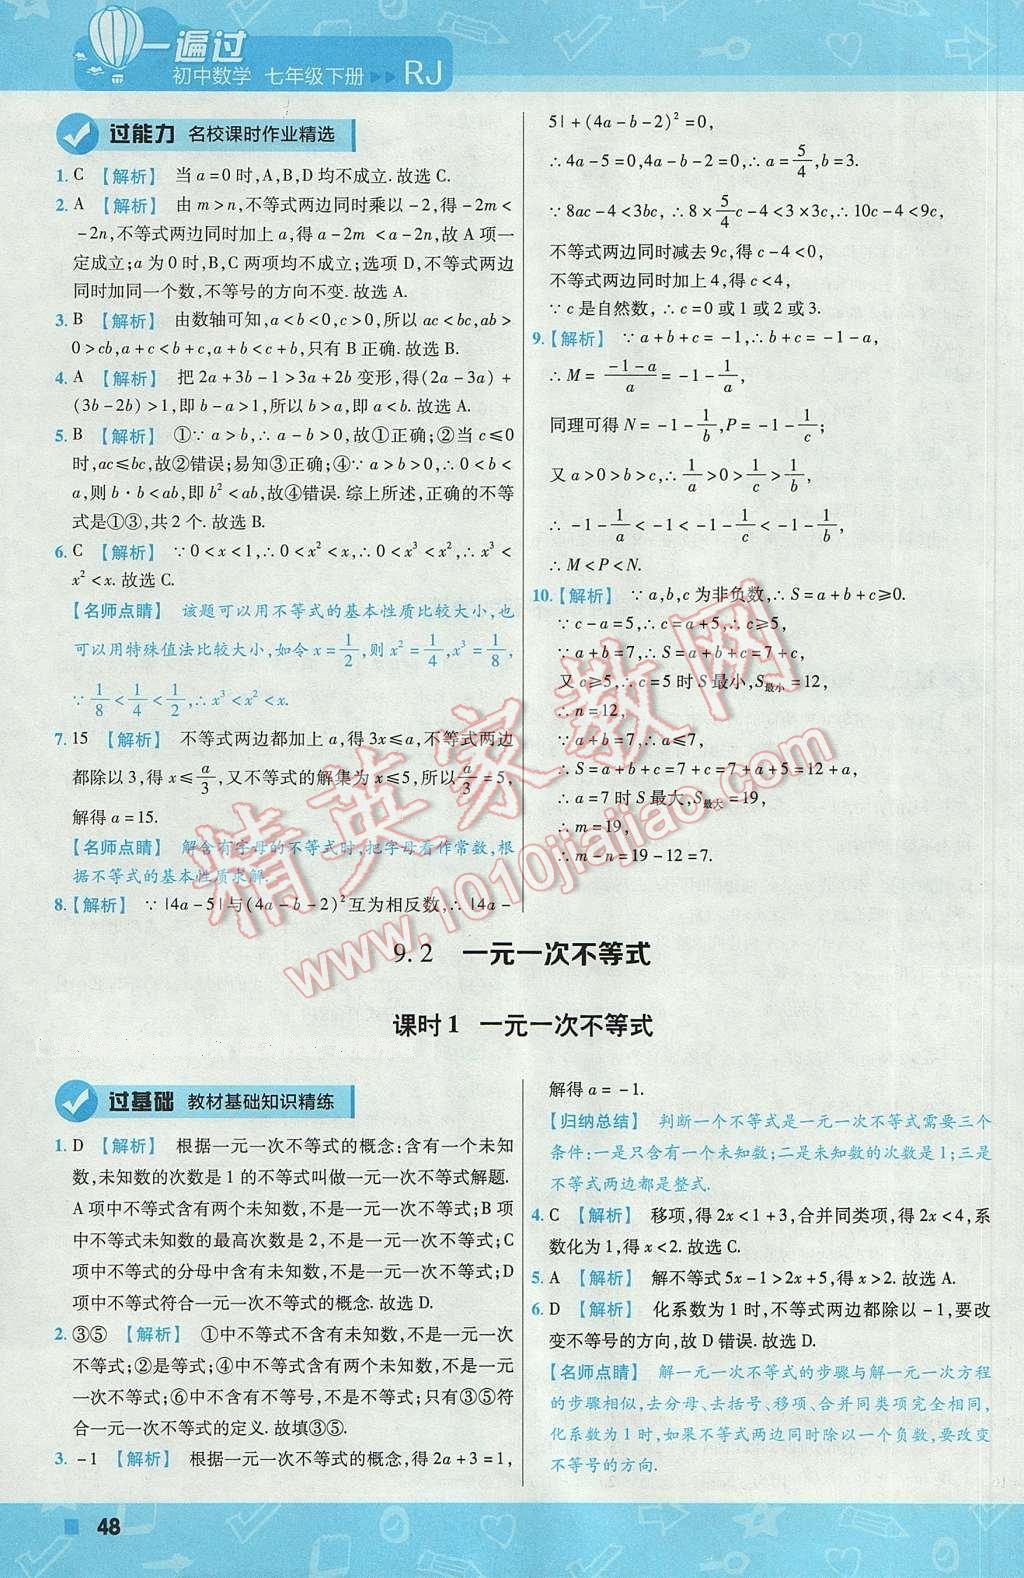 一遍过
初中数学 七年级下册 RJ
过能力 名校课时作业精选
1. C 【解析】 当a=0时,A,B,D均不成立.故选C.
2. A 【解析】 由m>n,不等式两边同时乘以-2,得-2m<
-2n,不等式两边同时加上a,得a-2m<a-2n,故A项一
定成立;a为0时,B,C两项均不成立;选项D,不等式两边
同时加同一个数,不等号的方向不变.故选A.
3. B 【解析】 由数轴可知,a<b<0,c>0,所以ac<bc,ab>
0>cb,a+c<b+c,a+b<c+b,只有B正确.故选B.
4. A 【解析】 把2a+3b-1>3a+2b变形,得(2a-3a)+
(3b-2b)>1,即b-a>1,所以b>a,即a<b.故选A.
5. B 【解析】 ①∵a>b,∴a-b>0,故①正确;②当c≤0
时,ac≤bc,故②错误;易知③正确;④∵a>b>0,∴0<b<
a,则b·b<ab,即b²<ab,故④错误.综上所述,正确的不等
式是①③,共2个.故选B.
6. C 【解析】 ∵0<x<1,∴0<x²<x,∴0<x³<x²,∴x³<
x²<x.故选C.
【名师点睛】 该题可以用不等式的基本性质比较大小,也
可以用特殊值法比较大小,如令x=1/2,则x²=1/4,x³=1/8,
∵1/8<1/4<1/2,∴x³<x²<x.
7. 15 【解析】 不等式两边都加上a,得3x≤a,不等式两边
都除以3,得x≤a/3,又不等式的解集为x≤5,所以a/3=5,
解得a=15.
【名师点睛】 解含有字母的不等式时,把字母看作常数,根
据不等式的基本性质求解.
8.【解析】 ∵|4a-5|与(4a-b-2)²互为相反数,∴|4a-
5|+(4a-b-2)²=0,
∴4a-5=0,4a-b-2=0,∴a=5/4,b=3.
∵8ac-4<3bc,∴8×5/4c-4<3×3c,∴10c-4<9c,
不等式两边同时减去9c,得c-4<0,
不等式两边同时加上4,得c<4,
∵c是自然数,∴c=0或1或2或3.
9.【解析】 ∵a+b+c=-1,∴b+c=-1-a,
∴M=(-1-a)/a=-1-1/a,
同理可得N=-1-1/b,P=-1-1/c;
又a>0>b>c,∴1/a>0>1/c>1/b,
∴-1-1/a<-1<-1-1/c<-1-1/b,
∴M<P<N.
10.【解析】 ∵a,b,c为非负数,∴S=a+b+c≥0.
∵c-a=5,∴c=a+5,∴c≥5,
∵a+b=7,∴S=a+b+c=7+c,
又c≥5,∴c=5时S最小,S最小=12,
∴n=12,
∵a+b=7,∴a≤7,
∴S=a+b+c=7+c=7+a+5=12+a,
∴a=7时S最大,S最大=19,
∴m=19,
∴m-n=19-12=7.
精英家教网
www.1010jiajiao.com
9.2 一元一次不等式
课时1 一元一次不等式
过基础 教材基础知识精练
1. D 【解析】 根据一元一次不等式的概念:含有一个未知
数,未知数的次数是1的不等式叫做一元一次不等式解题.
A项中不等式含有两个未知数,不是一元一次不等式;B项
中不等式未知数的最高次数是2,不是一元一次不等式;C
项中不等式的分母中含有未知数,不是一元一次不等式;D
项中不等式符合一元一次不等式的概念.故选D.
2. ③⑤ 【解析】 ①中不等式不含有未知数,不是一元一次
不等式;②是等式;④中不等式含有两个未知数,不是一元
一次不等式;⑥中不含有不等号,不是不等式;只有③⑤符
合一元一次不等式的定义.故填③⑤.
3. -1 【解析】 根据一元一次不等式的概念,得2a+3=1,
解得a=-1.
【归纳总结】 判断一个不等式是一元一次不等式需要三个
条件:一是只含有一个未知数;二是未知数的次数是1;三是
不等式两边都是整式.
4. C 【解析】 移项,得2x<1+3,合并同类项,得2x<4,系
数化为1,得x<2.故选C.
5. A 【解析】 解不等式5x-1>2x+5,得x>2.故选A.
6. D 【解析】 化系数为1时,不等式两边都除以-1,要改
变不等号的方向,故D错误.故选D.
【名师点睛】 解一元一次不等式的步骤与解一元一次方程
的步骤相似,去分母、去括号、移项、合并同类项完全相同,
化系数为1时,如果不等式两边同时除以一个负数,要改变
不等号的方向.
48